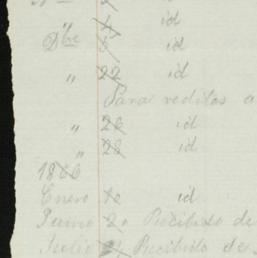 " 4 id
Dbe 5 id
" 22 id
Para reditos a
" 26 id
" 28 id
1866
Enero 10 id
Junio 20 Recibido de
Julio Recibido de